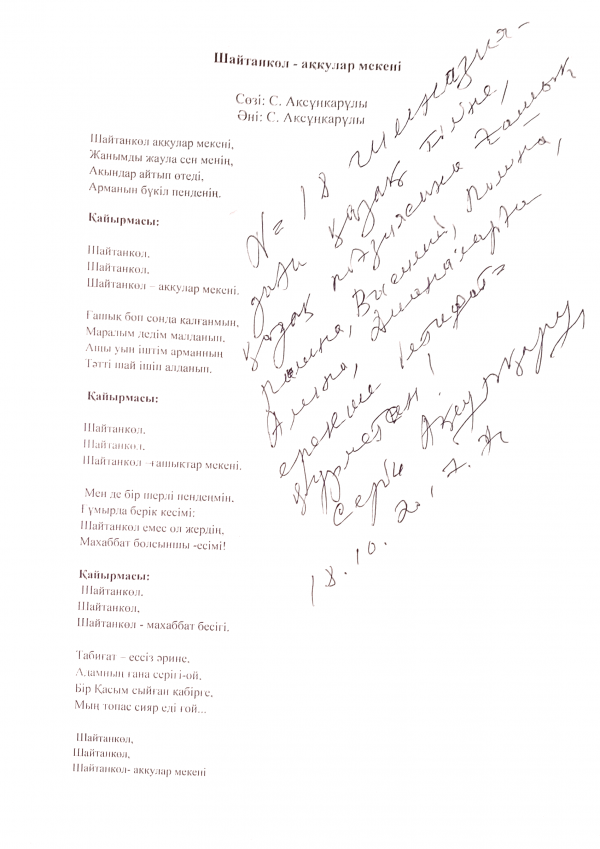 Шайтанкөл - аққулар мекені
Сөзі: С. Ақсұңқарұлы
Әні: С. Ақсұңқарұлы
Шайтанкөл аққулар мекені,
Жанымды жаула сен менің,
Ақындар айтып өтеді,
Арманын бүкіл пенденің.
Қайырмасы:
Шайтанкөл.
Шайтанкөл.
Шайтанкөл – аққулар мекені.
Ғашық боп сонда қалғанмын,
Маралым дедім малданып,
Ащы уын іштім арманның
Тәтті шай ішіп алданып.
Қайырмасы:
Шайтанкөл.
Шайтанкөл.
Шайтанкөл –ғашықтар мекені.
Мен де бір шерлі пенденмін.
Ғұмырда берік кесімі:
Шайтанкөл емес ол жердің,
Махаббат болсыншы -есімі!
Қайырмасы:
Шайтанкөл.
Шайтанкөл,
Шайтанкөл - махаббат бесігі.
Табиғат – ессіз әрине.
Адамның ғана серігі-ой.
Бір Қасым сыйған қабірге,
Мың топас сияр еді ғой...
Шайтанкөл,
Шайтанкөл,
Шайтанкөл- аққулар мекені
№ 18 гимназия-
дағы қазақ тіліне,
қазақ поэзиясына ғашық
Полина,
Алина,
ерекше
құрметпен!
Серік Ақсұңқарұлы
18.10.2017 ж